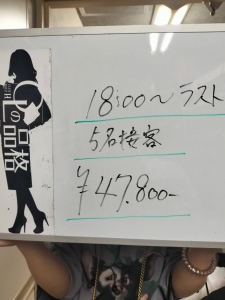 OLの品格
18:00～ラスト
5名接客
¥47.800-